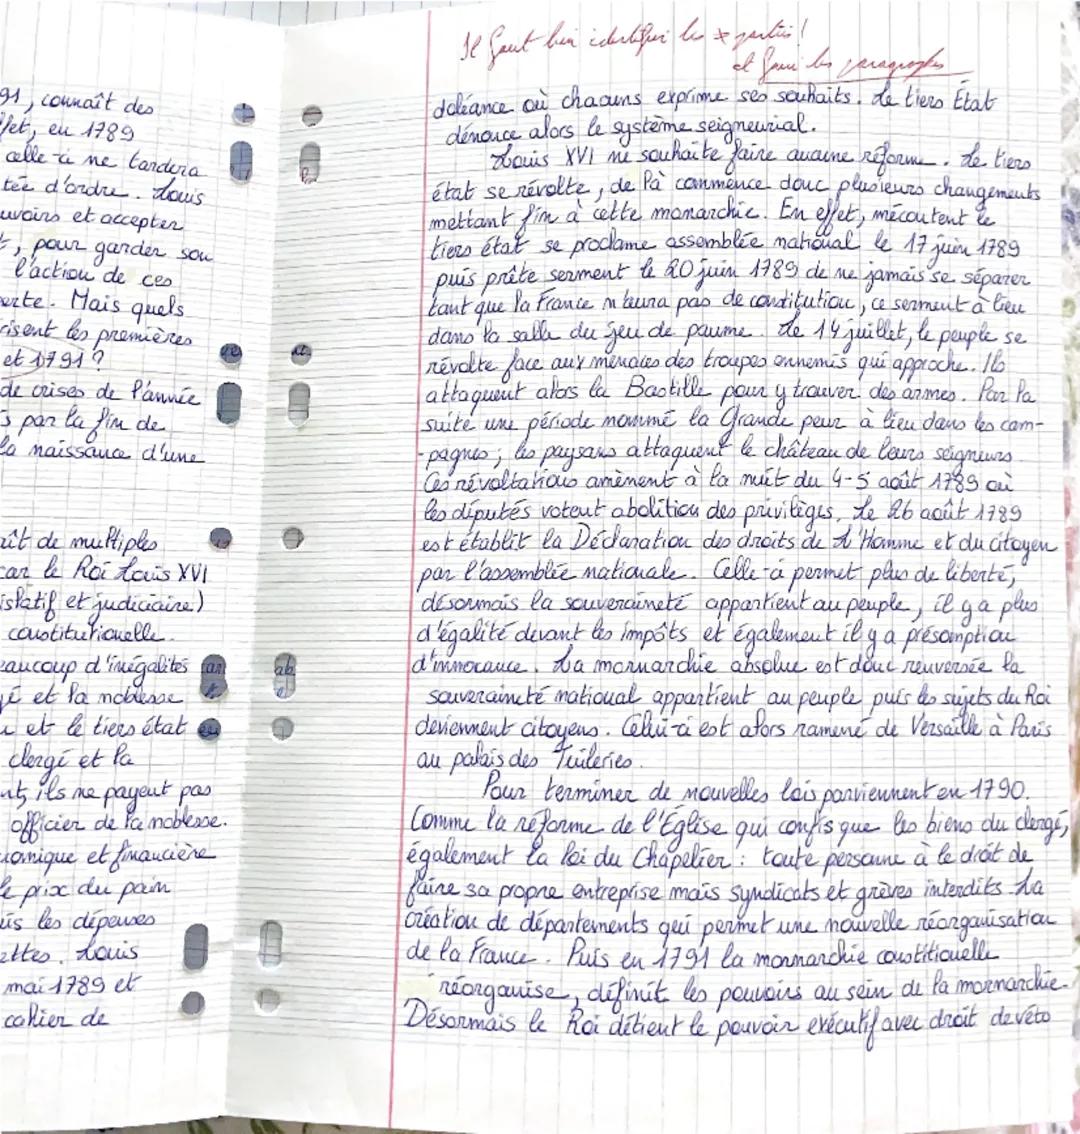 91, connaît des
ffet, en 1789
celle-ci ne tardera
tée d'ordre. Louis
uvoirs et accepter
t, pour garder son
l'action de ces
verte. Mais quels
risent les premières
et 1791 ?
de crises de l'année
s par la fin de
la naissance d'une
aît de multiples
car le Roi Louis XVI
islatif et judiciaire)
constitutionelle.
eaucoup d'inégalités
gé et la noblesse
et le tiers état
clergé et la
nt, ils ne payent pas
officier de la noblesse.
nomique et financière
le prix du pain
uis les dépenses
ettes. Louis
mai 1789 et
cahier de
Il faut bien identifier les ≠ parties !
et faire les paragraphes
doléance où chacuns exprime ses souhaits. Le tiers État
dénonce alors le système seigneurial.
Louis XVI ne souhaite faire aucune réforme. Le tiers
état se révolte, de là commence donc plusieurs changements
mettant fin à cette monarchie. En effet, mécoutent le
tiers état se proclame assemblée national le 17 juin 1789
puis prête serment le 20 juin 1789 de ne jamais se séparer
tant que la France n'aura pas de constitution, ce serment à lieu
dans la salle du jeu de paume. Le 14 juillet, le peuple se
révolte face aux ménaces des troupes ennemis qui approche. Ils
attaquent alors la Bastille pour y trouver des armes. Par la
suite une période nommé la Grande peur à lieu dans les cam-
-pagnes ; les paysans attaquent le château de leurs seigneurs.
Ces révoltations amènent à la nuit du 4-5 août 1789 où
les députés votent abolition des privilèges. Le 26 août 1789
est établit la Déclaration des droits de L'Homme et du citoyen
par l'assemblée nationale. Celle-ci permet plus de liberté,
désormais la souveraineté appartient au peuple, il y a plus
d'égalité devant les impôts et également il y a présomption
d'innocance. La mornarchie absolue est donc renversée la
souveraineté national appartient au peuple puis les sujets du Roi
deviennent citoyens. Celui-ci est alors ramené de Versaille à Paris
au palais des Tuileries.
Pour terminer de nouvelles lois parviennent en 1790.
Comme la réforme de l'Église qui confisque les biens du clergé,
également la loi du Chapelier : toute personne à le droit de
faire sa propre entreprise mais syndicats et grèves interdits. La
création de départements qui permet une nouvelle réorganisation
de la France. Puis en 1791 la mornarchie constitionelle
réorganise, définit les pouvoirs au sein de la mornarchie.
Désormais le Roi détient le pouvoir exécutif avec droit de véto